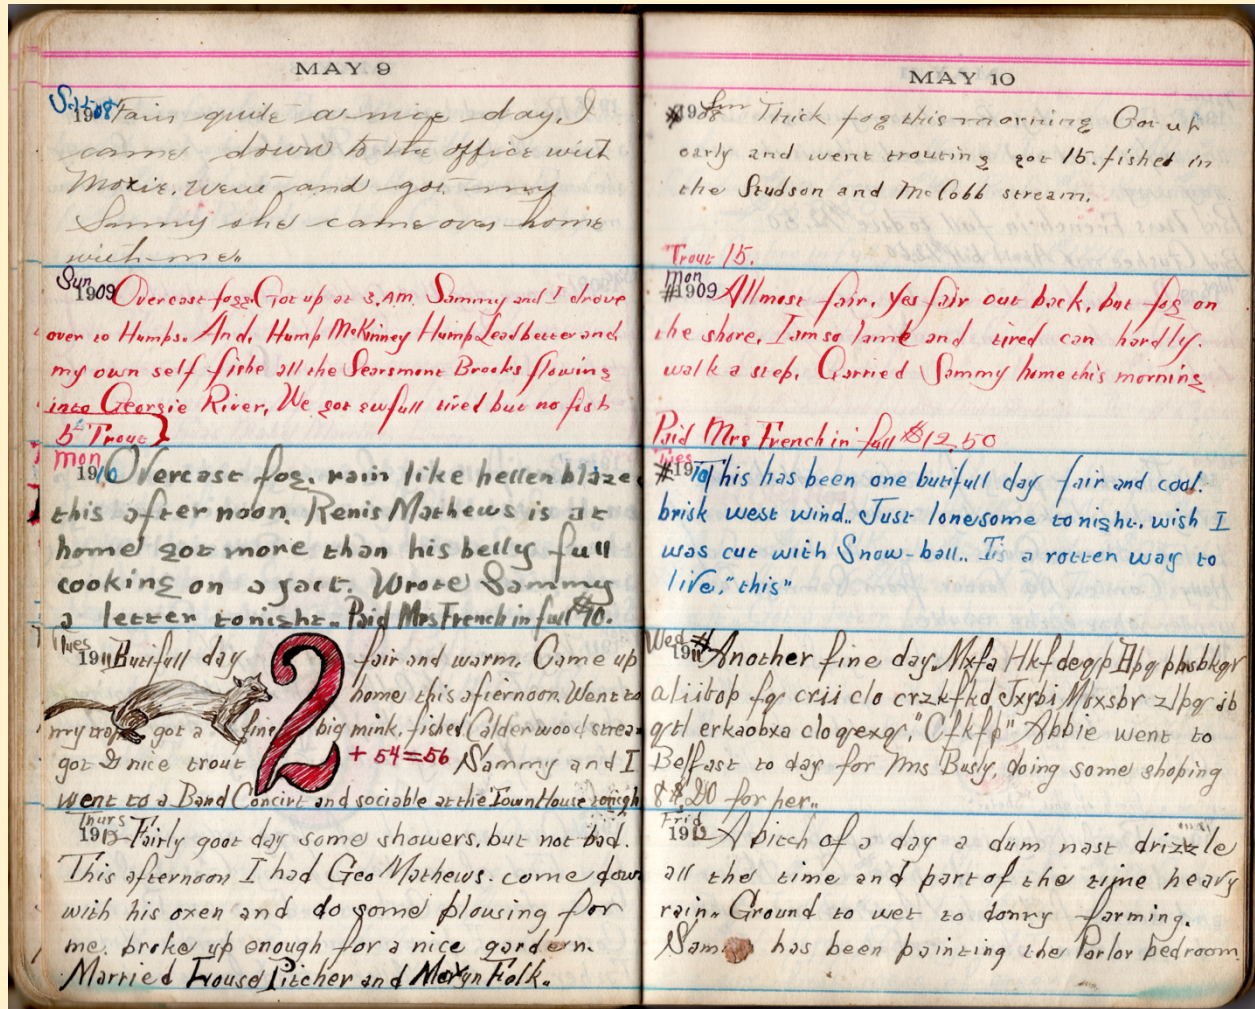 MAY 9
Sat 1908 Fair quite a nice day. I
came down to the office with
Moxie, went and got my
Sammy she came over home
with me..
Sun 1909 Overcast fogg. Got up at 3, AM. Sammy and I drove
over to Humps. And, Hump McKinney Hump Leadbetter and,
my own self fishe all the Searsmont Brooks flowing
into Georgie River, We got awfull tired but no fish
5 Trout
Mon 1910 Overcast fog, rain like hellen blazes
this afternoon. Renis Mathews is at
home got more than his belly full
cooking on a
Wrote Sammy
a letter tonight.. Paid Mrs French in full $10.
Tues 1911 Butifull day fair and warm. Came up
home this afternoon. Went to
my traps got a fine big mink, fished Calderwood stream
got 2 nice trout + 54=56 Sammy and I
went to a Band Concirt and sociable at the Town House tonigh
2
Thurs
Fairly goot day some showers, but not bad.
This afternoon I had Geo Mathews. come down
with his oxen and do some plousing for
me. broke up enough for a nice gardern.
Married House Pitcher and Folk..
MAY 10
Sun 1908 Thick fog this morning Got up
early and went trouting got 15. fished in
the Studson and McCobb stream.
Trout 15.
Mon
1909 Allmost fair, yes fair out back, but fog on
the shore, I am so lame and tired can hardly.
walk a step, Carried Sammy home this morning
Paid Mrs French in full $12.50
Tues
1910 This has been one butifull day fair and cool.
brisk west wind.. Just lonesome tonight, wish I
was out with Snow-ball.. Is a rotten way to
live," this"
Wed 1911 Another fine day.
"Cfkfp" Abbie went to
Belfast to day for Mrs Busly, doing some shoping
8 $.20 for her..
Frid
A bitch of a day a dum nast drizzle
all the time and part of the time heavy
rain.. Ground to wet to donny farming.
has been painting the Parlor bedroom.